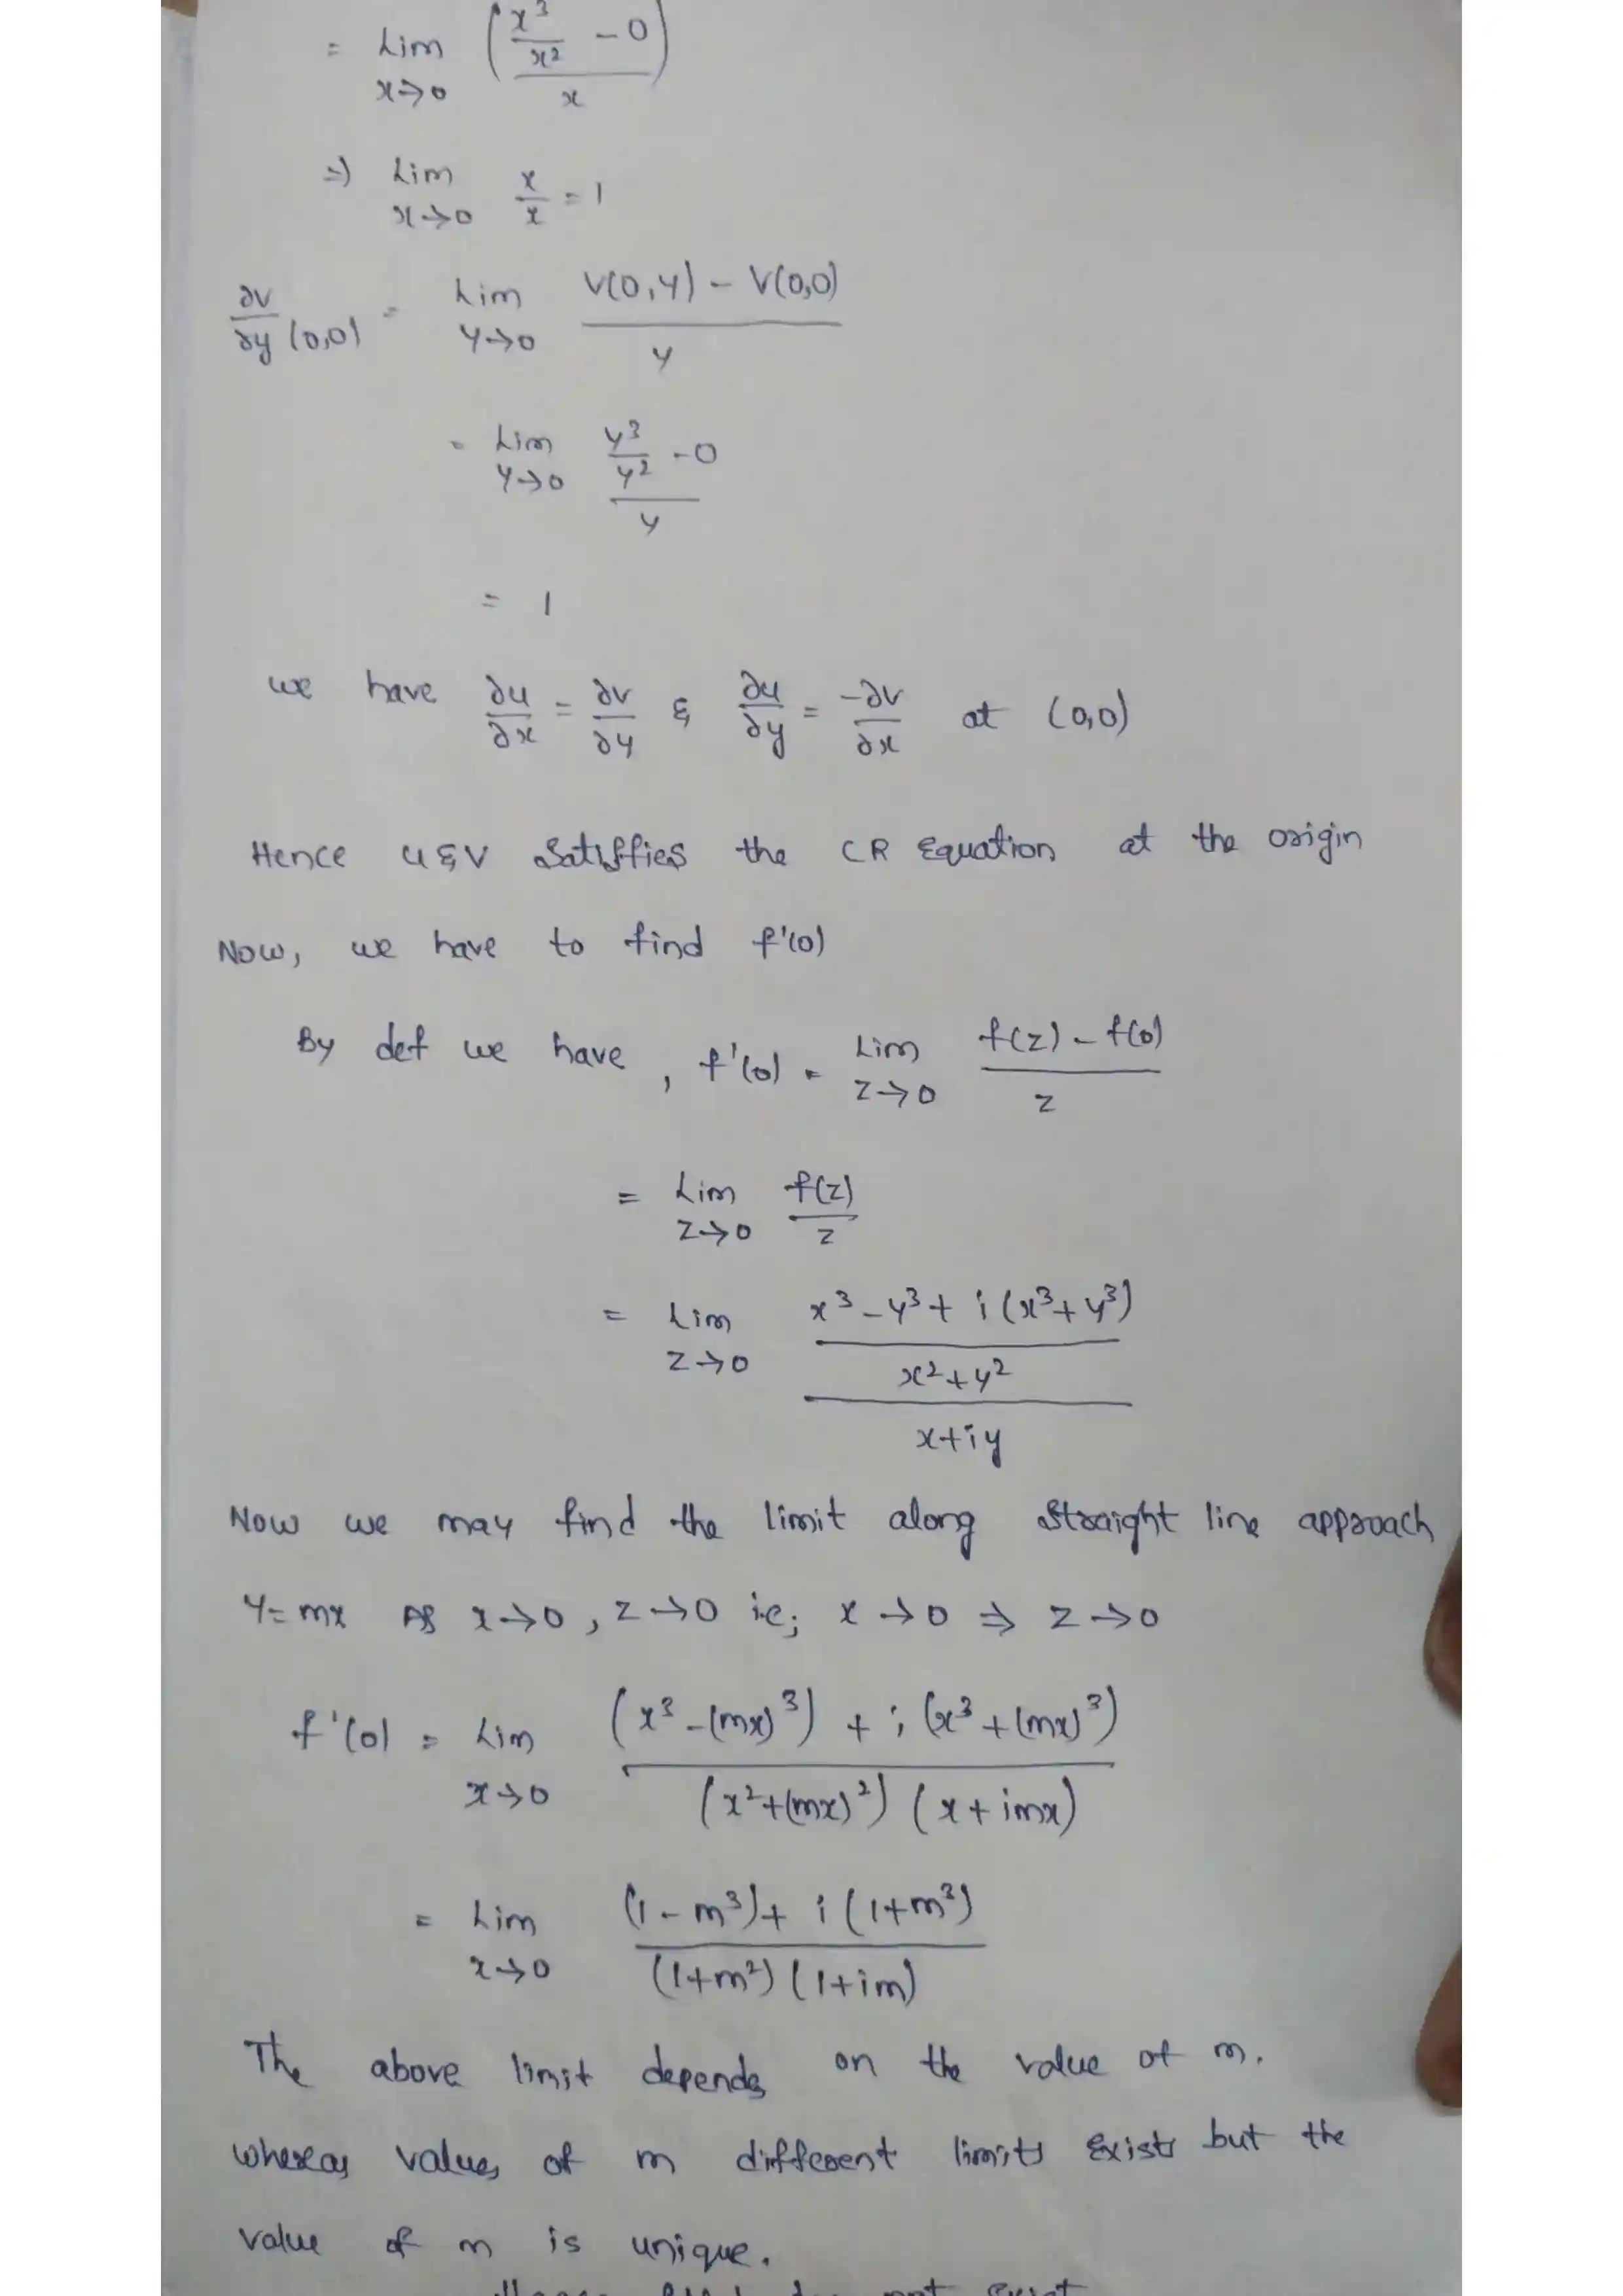 = Lim (x³/x² - 0)/x
x→0
⇒ Lim x/x = 1
x→0
∂v/∂y (0,0) = Lim V(0,y) - V(0,0)/y
y→0
= Lim y³/y² - 0/y
y→0
= 1
we have ∂u/∂x = ∂v/∂y & ∂u/∂y = -∂v/∂x at (0,0)
Hence u & v Satisffies the CR Equation at the origin
Now, we have to find f'(0)
By def we have, f'(0) = Lim f(z) - f(0)/z
z→0
= Lim f(z)/z
z→0
= Lim x³ - y³ + i(x³ + y³)/x² + y²/x + iy
z→0
Now we may find the limit along straight line approach
y = mx As x→0, z→0 i.e; x→0 ⇒ z→0
f'(0) = Lim (x³ - (mx)³) + i(x³ + (mx)³)/(x² + (mx)²)(x + imx)
x→0
= Lim (1 - m³) + i(1 + m³)/(1 + m²)(1 + im)
x→0
The above limit depends on the value of m.
whereas values of m different limits Exists but the
value of m is unique.
not Exist